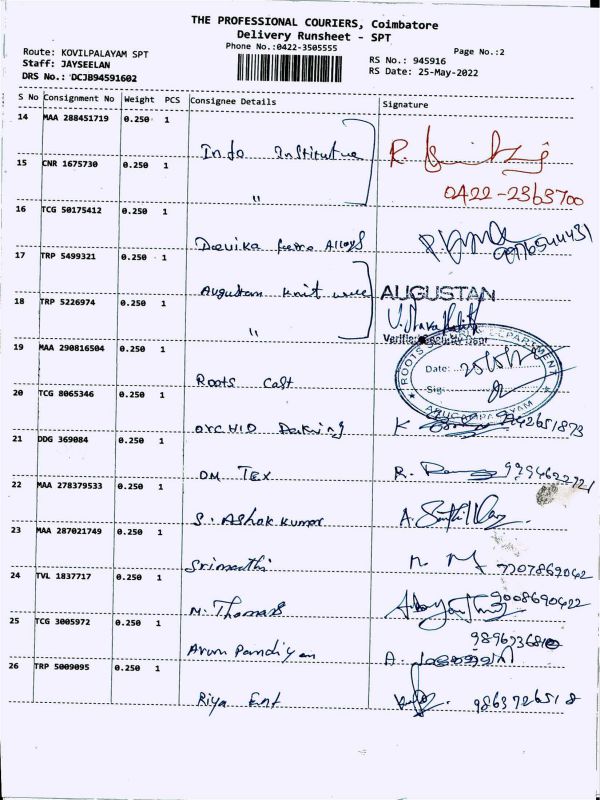 THE PROFESSIONAL COURIERS, Coimbatore
Delivery Runsheet - SPT
Phone No.:0422-3505555
Page No.:2
Route: KOVILPALAYAM SPT
Staff: JAYSEELAN
DRS No.: DCJB94591602
RS No.: 945916
RS Date: 25-May-2022
S No Consignment No Weight PCS Consignee Details Signature
14 MAA 288451719 0.250 1
Info Institutue R.
15 CNR 1675730 0.250 1
" 0422-2363700
16 TCG 50175412 0.250 1
Devika Ferro Alloys
17 TRP 5499321 0.250 1
Augustan Knit AUGUSTAN
18 TRP 5226974 0.250 1
"
19 MAA 290816504 0.250 1
ROOTS DEPARTMENT
Date:
Sig:
Roots Cast
20 TCG 8065346 0.250 1
ORCHID K
21 DDG 369084 0.250 1
OM TEX R.
22 MAA 278379533 0.250 1
S. Ashok kumar A.
23 MAA 287021749 0.250 1
Srimathi 7707869042
24 TVL 1837717 0.250 1
M. Thomas 9008690422
25 TCG 3005972 0.250 1
Arun Pandiyan A.
26 TRP 5009095 0.250 1
Riya Ent 9863726518